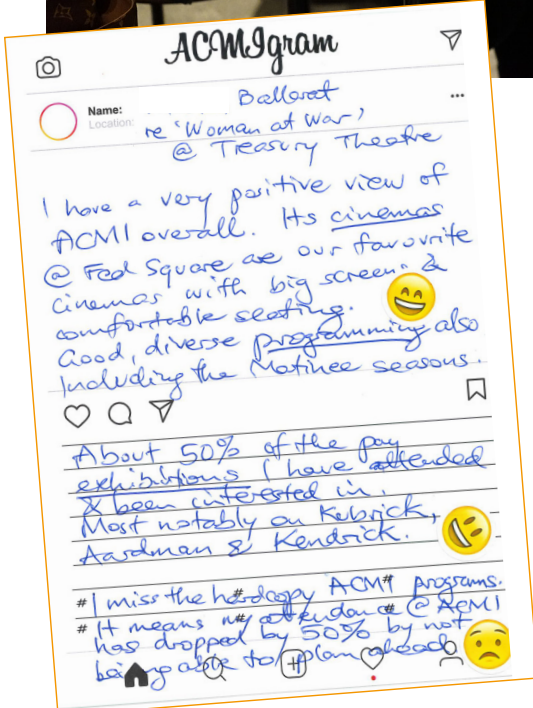 ACMIgram
Name: Ballarat
Location: re 'Woman at War'
@ Treasury Theatre
I have a very positive view of
ACMI overall. Its cinemas
@ Fed Square are our favourite
cinemas with big screens &
comfortable seating.
Good, diverse programming also
Including the Matinee seasons.
About 50% of the pay
exhibitions I have attended
& been interested in.
Most notably on Kubrick,
Aardman & Kendrick.
# I miss the hardcopy ACMI programs.
# It means my attendance @ ACMI
has dropped by 50% by not
being able to plan ahead